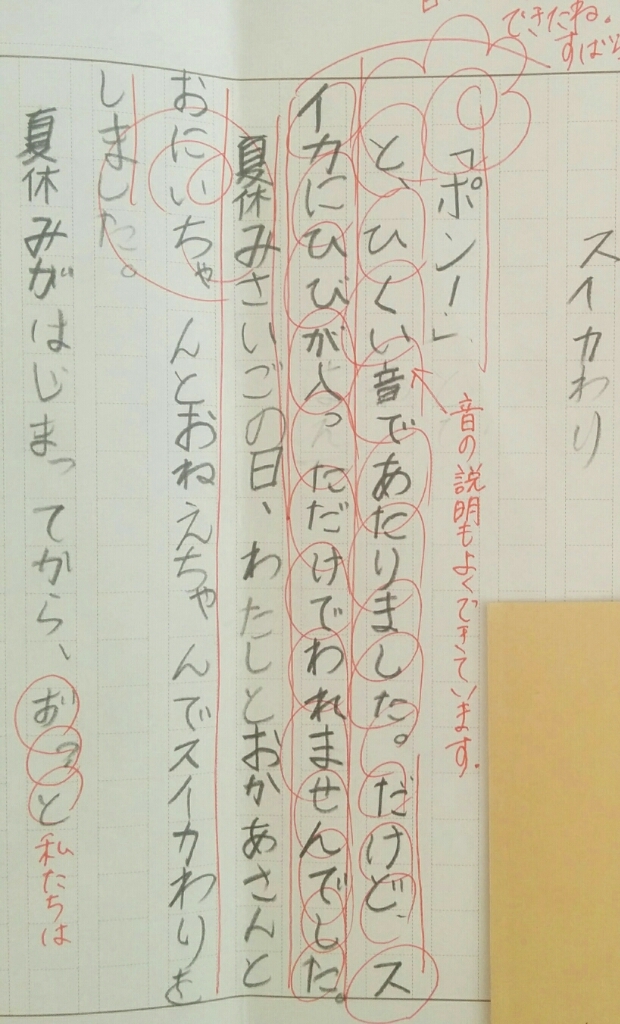 できたね。
すばら
スイカわり
「ポン!」
音の説明もよくできています。
と、ひくい音であたりました。だけど、ス
イカにひびが入っただけでわれませんでした。
夏休みさいごの日、わたしとおかあさんと
おにいちゃんとおねえちゃんでスイカわりを
しました。
夏休みがはじまってから、
私たちは